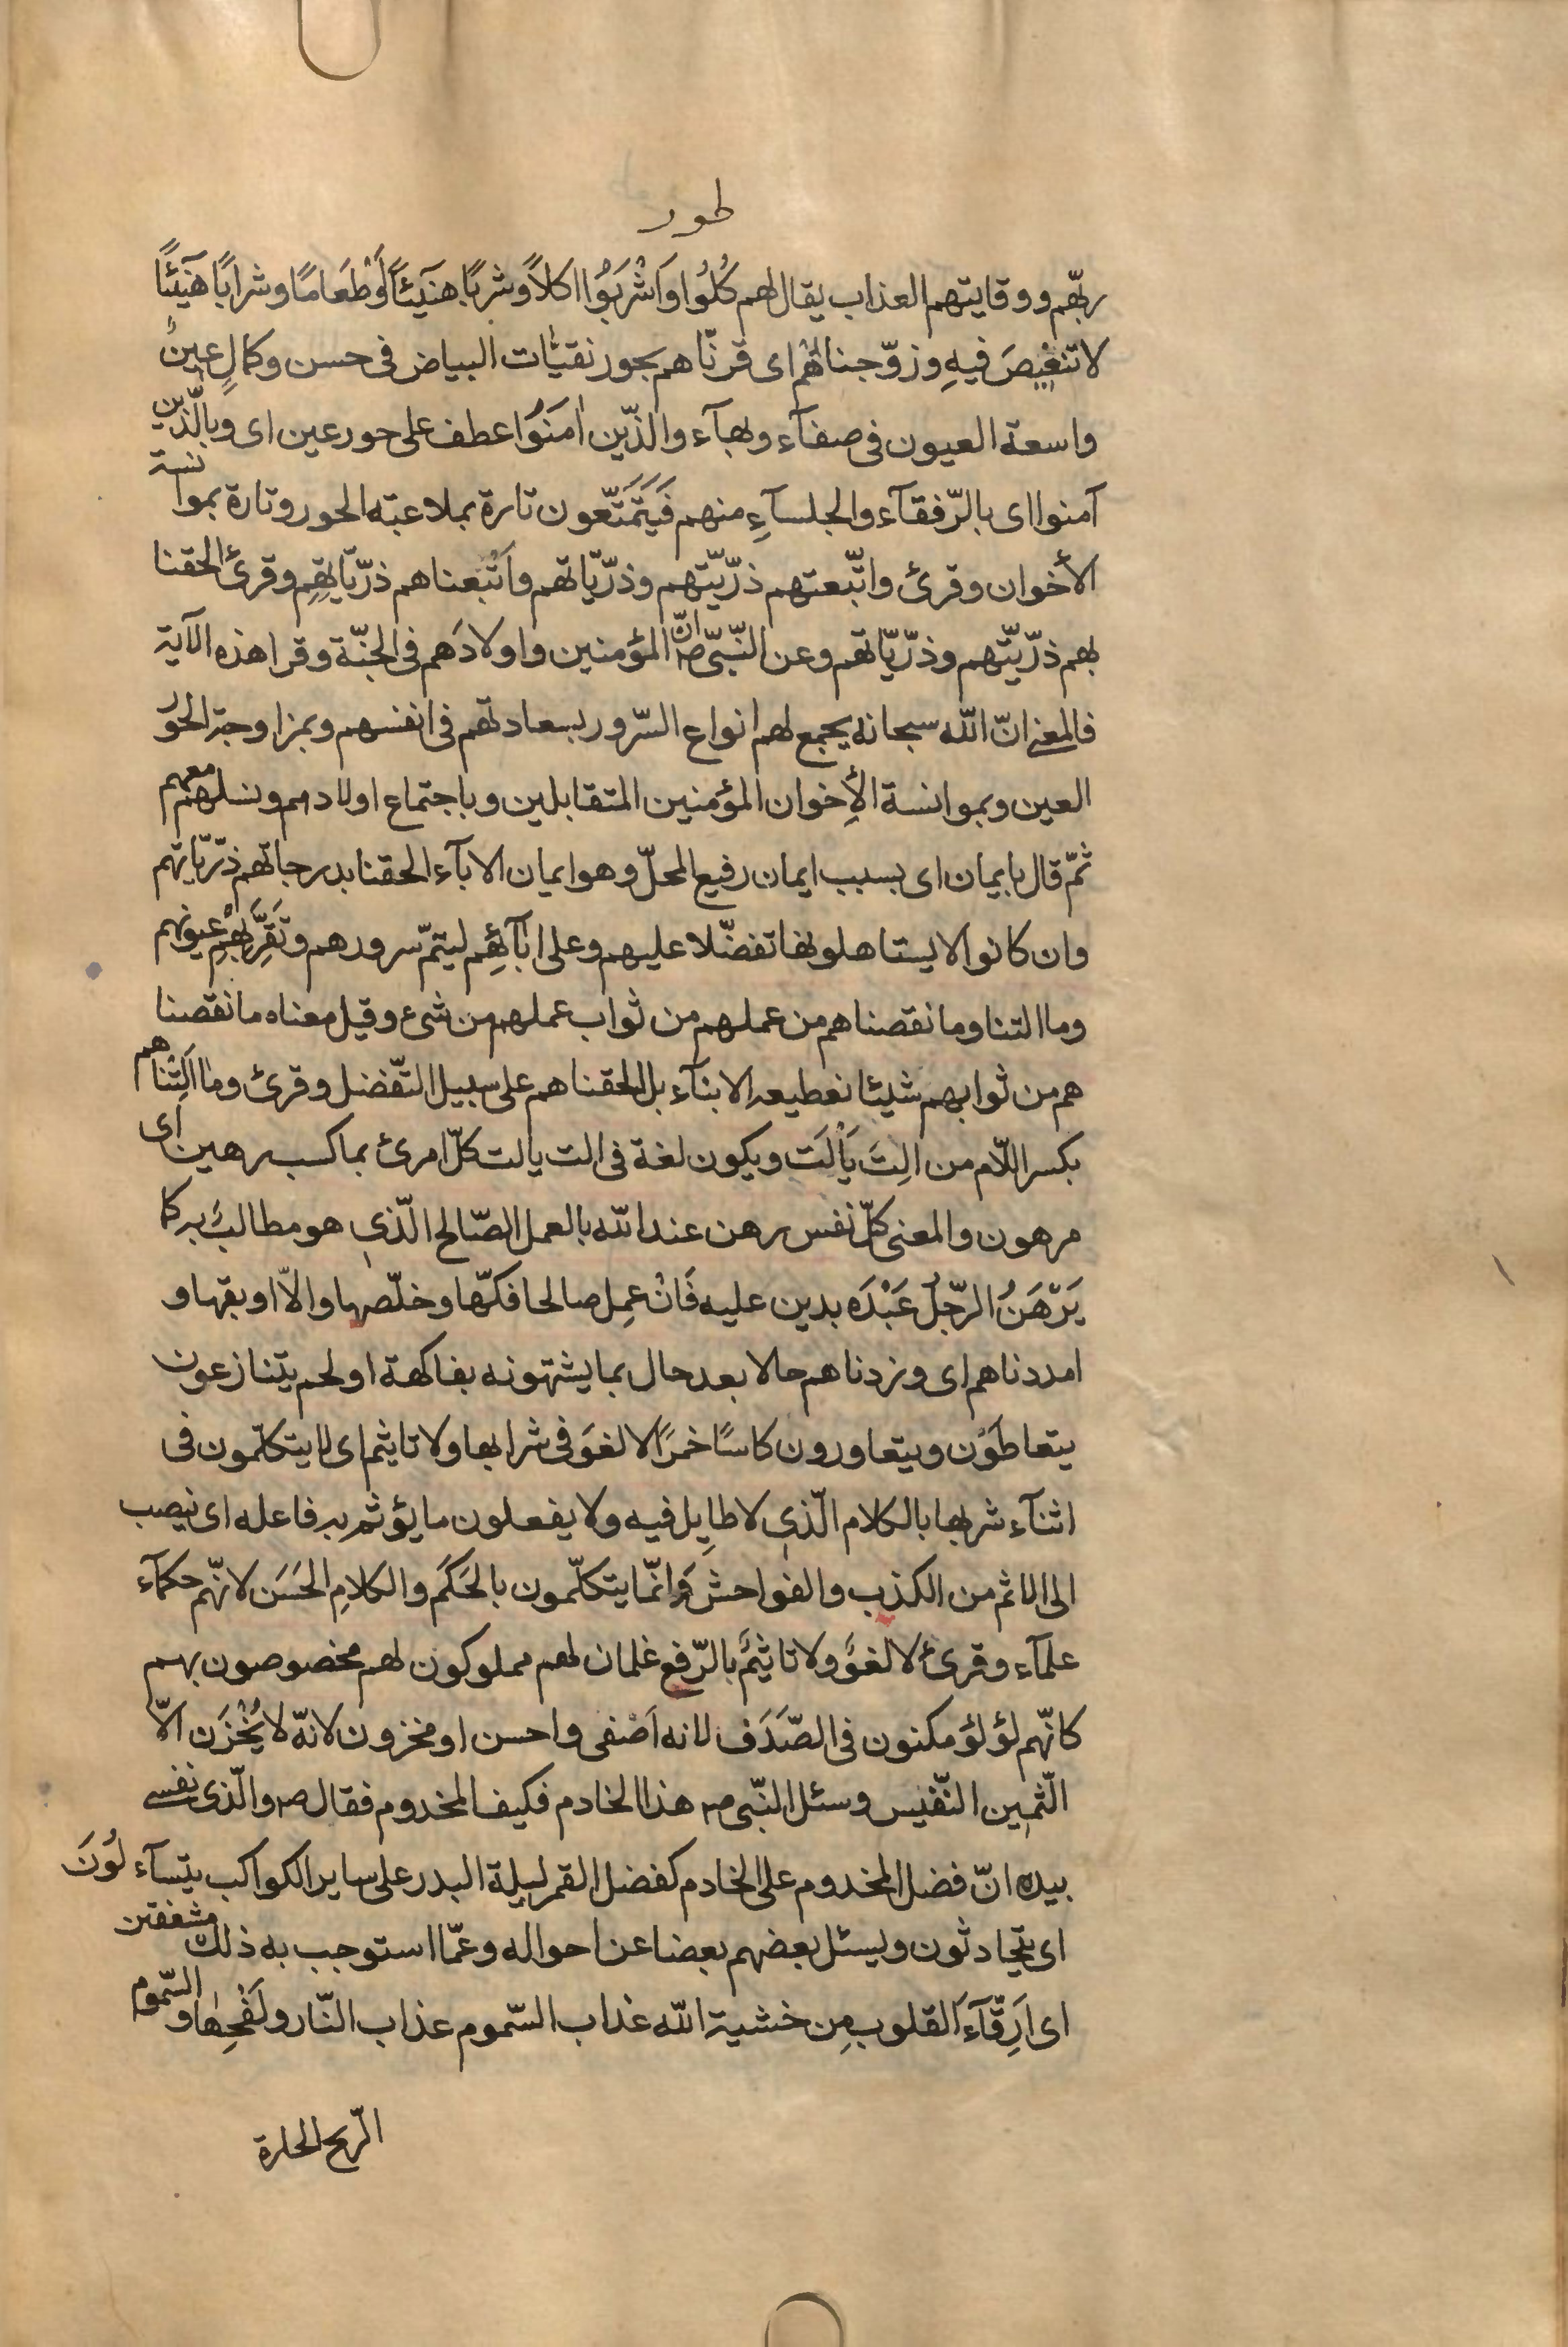 طور
ربّهم ووقايتهم العذاب يقال لهم كُلُوا وَاشْرَبُوا اكلاً وشربًا هنيئًا اَوْ طَعَامًا وشرابًا هَنِيئًا
لا تنغيصَ فيهِ وزوّجناهُم اى قرنّاهم بحور نقيّات البياض فى حسن وكمالٍ عِينٌ
واسعة العيون فى صفآء وبهآء والذّين اٰمَنُوا عطف على حور عين اى وبالّذين
آمنوا اى بالرّفقآء والجلسآءِ منهم فَيَتَمَتّعون تارة بملاعبته الحور وتارة بموانسة
الأخوان وقرئ واتّبعتهم ذرّيّتهم وذرّيّاتهم واَتْبعناهم ذرّيّاتِهم وقرئ الحقنا
بهم ذرّيّتهم وذرّيّاتهم وعن النّبىّ صه انّ المؤمنين واولادَهم فى الجنّة وقرا هذه الآية
فالمعنى انّ الله سبحانه يجمع لهم انواع السّرور بسعادتهم فى انفسهم وبمزاوجة الحور
العين وبموانسة الأِخوان المؤمنين المتقابلين وباجتماع اولادهم ونسلهم معهم
ثمّ قال بايمان اى بسبب ايمان رفيع المحلّ وهو ايمان الابآء الحقنا بدرجاتهم ذرّيّاتهم
وان كانوا لا يستاهلونها تفضّلا عليهم وعلى اٰبآئِهِم ليتمّ سرورهم وتَقِرَّ بِهِمْ عيونهم
وما التنا وما نقصناهم من عملهم من ثواب عملهم من شىء وقيل معناه ما نقصنا
هم من ثوابهم شيئا نعطيه الابنآء بل الحقناهم على سبيل التّفضل وقرئ وما اَلِتْناهم
بكسر اللّام من الِتَ يَأْلَت ويكون لغة فى الت يالت كلّ امرئ بما كسب رهين اى
مرهون والمعنى كلّ نفس رهن عند الله بالعمل الصّالح الّذى هو مطالبٌ به كما
يَرْهَنُ الرّجلُ عَبْدَه بدين عليه فَانْ عمِل صالحا فكّها وخلّصها والّا اوبقها و
امددناهم اى وزدناهم حالا بعد حال بما يشتهونه بفاكهة او لحم يتنازعون
يتعاطَوْن ويتعاورون كاسًا خمرًا لا لغوَ فى شرابها ولا تاثيم اى لا يتكلّمون فى
اثنآء شربها بالكلام الّذى لا طايِل فيه ولا يفعلون ما يؤثم به فاعله اى ينصب
الى الاثم من الكذب والفواحش وَانّما يتكلّمون بالحَكَم والكلامِ الحَسَن لانّهم حكمآء
علمآء وقرئ لا لغوٌ ولا تاثيمٌ بالرّفع غلمان لهم مملوكون لهم مخصوصون بهم
كانّهم لؤلؤ مكنون فى الصّدَف لانه اَصْفى واحسن او مخزون لانّه لا يُخْزَن الّا
الثّمين النّفيس وسئل النّبى صه هذا الخادم فكيف المخدوم فقال صه والّذى نفسى
بيده انّ فضل المخدوم على الخادم كفضل القمر ليلة البدر على ساير الكواكب يتسآءلُونَ
اى يتحادثون ويسئل بعضهم بعضا عن احواله وعمّا استوجب به ذلك مشفقين
اى اَرِقّآءَ القلوب مِن خشية الله عذاب السّموم عذاب النّار ولَفْحِها والسّموم
الّريح الحارة